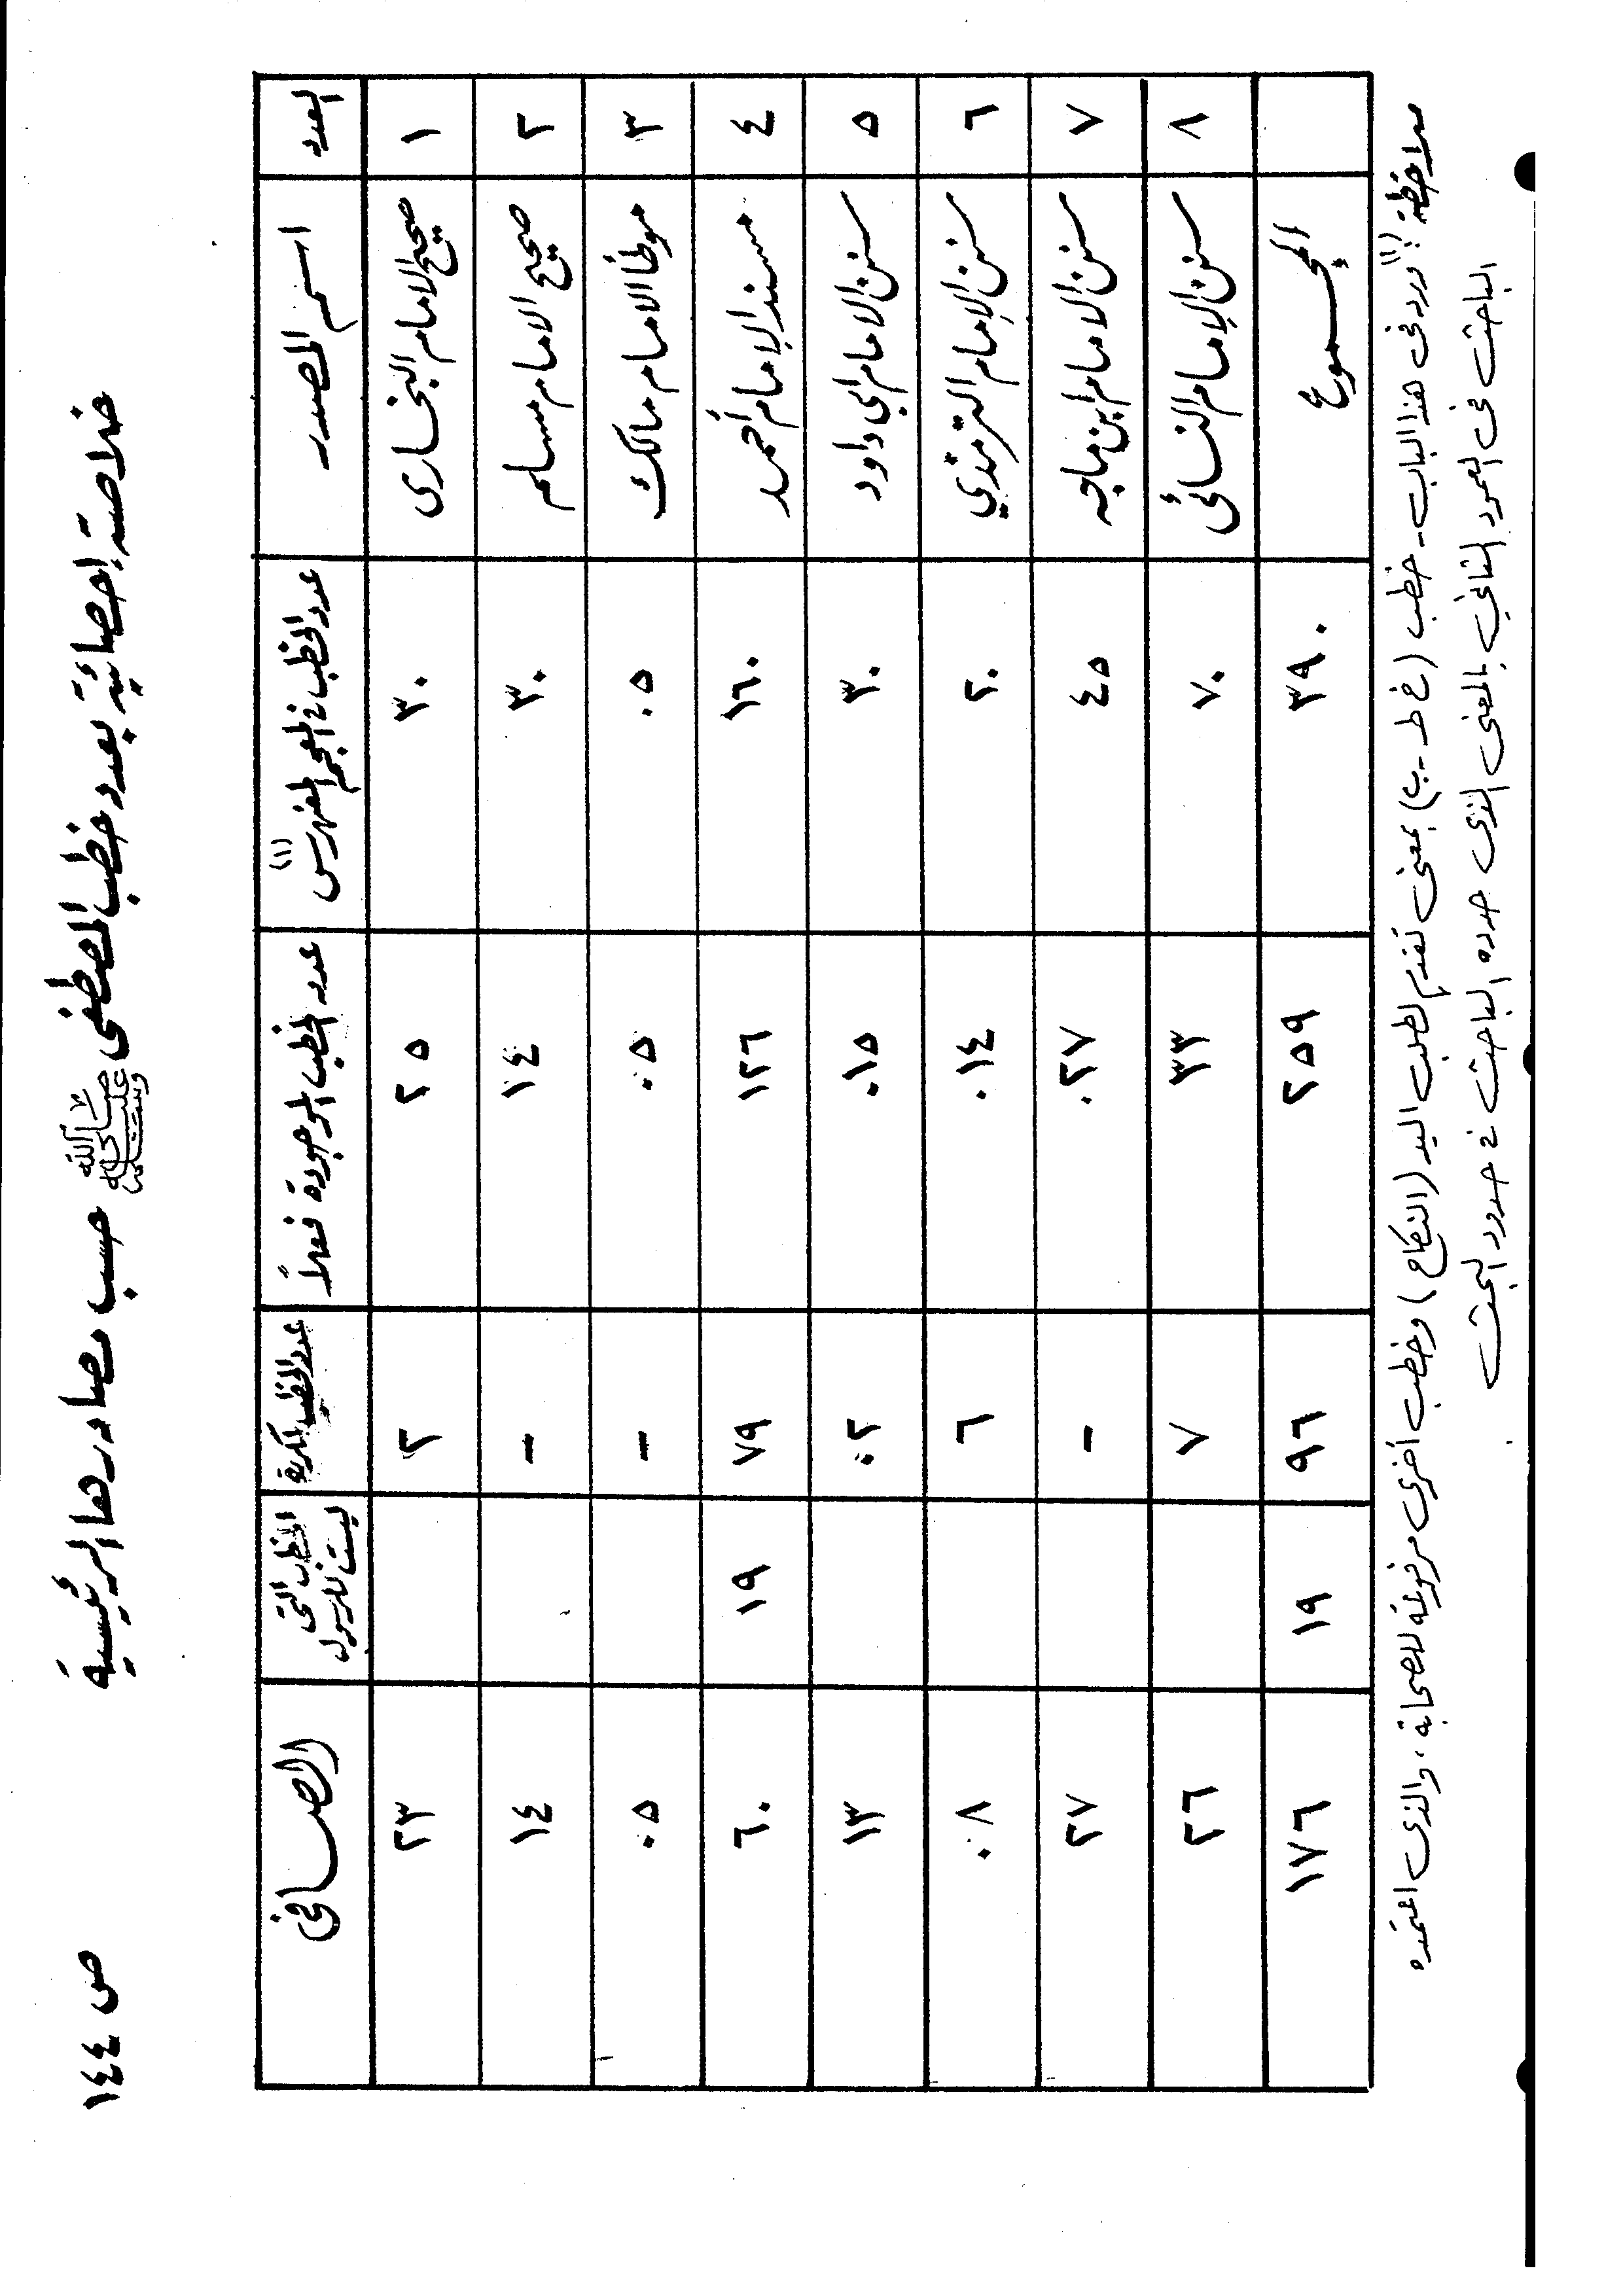 خلاصة إحصائية بعدد خطب المصطفى صلى الله عليه وسلم حسب مصادرها الرئيسية ص ١٤٤
العدد | اسم المصدر | عدد الخطب في المعجم المفهرس (١) | عدد الخطب الموجودة فعلاً | عدد الخطب المكررة | الخطب التى ليست للرسول | الصافى
١ | صحيح الامام البخارى | ٣٠ | ٢٥ | ٢ | | ٢٣
٢ | صحيح الامام مسلم | ٣٠ | ١٤ | - | | ١٤
٣ | موطأ الامام مالك | ٠٥ | ٠٥ | - | | ٠٥
٤ | مسند الإمام أحمد | ١٦٠ | ١٢٦ | ٧٩ | ١٩ | ٦٠
٥ | سنن الامام ابي داود | ٣٠ | ٠١٥ | ٠٢ | | ١٣
٦ | سنن الإمام الترمذي | ٢٠ | ٠١٤ | ٦ | | ٠٨
٧ | سنن الامام ابن ماجه | ٤٥ | ٠٢٧ | - | | ٢٧
٨ | سنن الإمام النسائى | ٧٠ | ٣٣ | ٧ | | ٢٦
المجموع | ٣٩٠ | ٢٥٩ | ٩٦ | ١٩ | ١٧٦
ملاحظة : (١) ورد فى هذا الباب - خطب (خ ط - ب) بمعنى تقدم لطلب اليد (النكاح) وخطب أخرى مرفوعة للصحابة، والذى اعتمده
الباحث فى العمود الثاني بالمعنى الذى حدده الباحث في حدود البحث